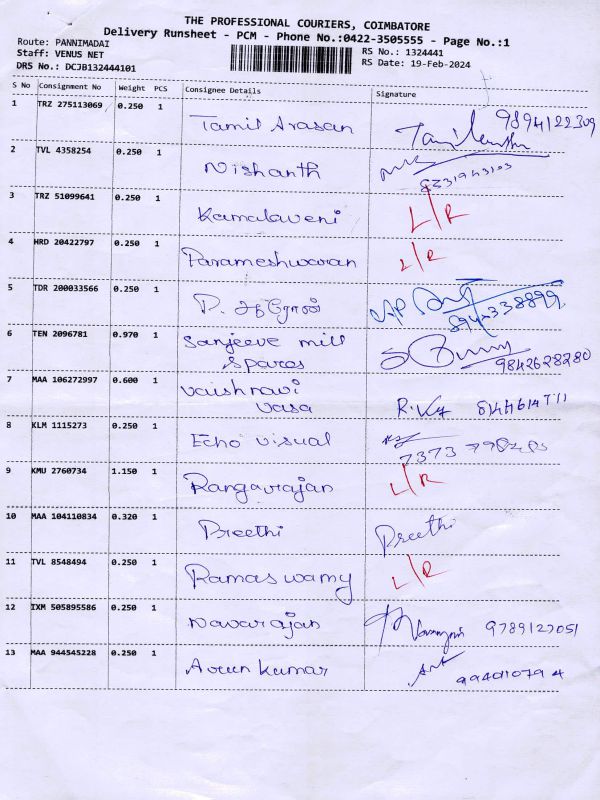 THE PROFESSIONAL COURIERS, COIMBATORE
Delivery Runsheet - PCM - Phone No.:0422-3505555 - Page No.:1
Route: PANNIMADAI
Staff: VENUS NET
DRS No.: DCJB132444101
RS No.: 1324441
RS Date: 19-Feb-2024
S No Consignment No Weight PCS Consignee Details Signature
1 TRZ 275113069 0.250 1 Tamil Arasan 9894122309
2 TVL 4358254 0.250 1 Nishanth
3 TRZ 51099641 0.250 1 Kamalaveni L/R
4 HRD 20422797 0.250 1 Parameshwaran L/R
5 TDR 200033566 0.250 1 P.
6 TEN 2096781 0.970 1 Sanjeeve mill
Spares 9842628280
7 MAA 106272997 0.600 1 Vaishnavi
Vasa
8 KLM 1115273 0.250 1 Echo visual
9 KMU 2760734 1.150 1 Rangarajan L/R
10 MAA 104110834 0.320 1 Preethi Preethi
11 TVL 8548494 0.250 1 Ramaswamy L/R
12 IXM 505895586 0.250 1 Navarajan 9789127051
13 MAA 944545228 0.250 1 Arun kumar